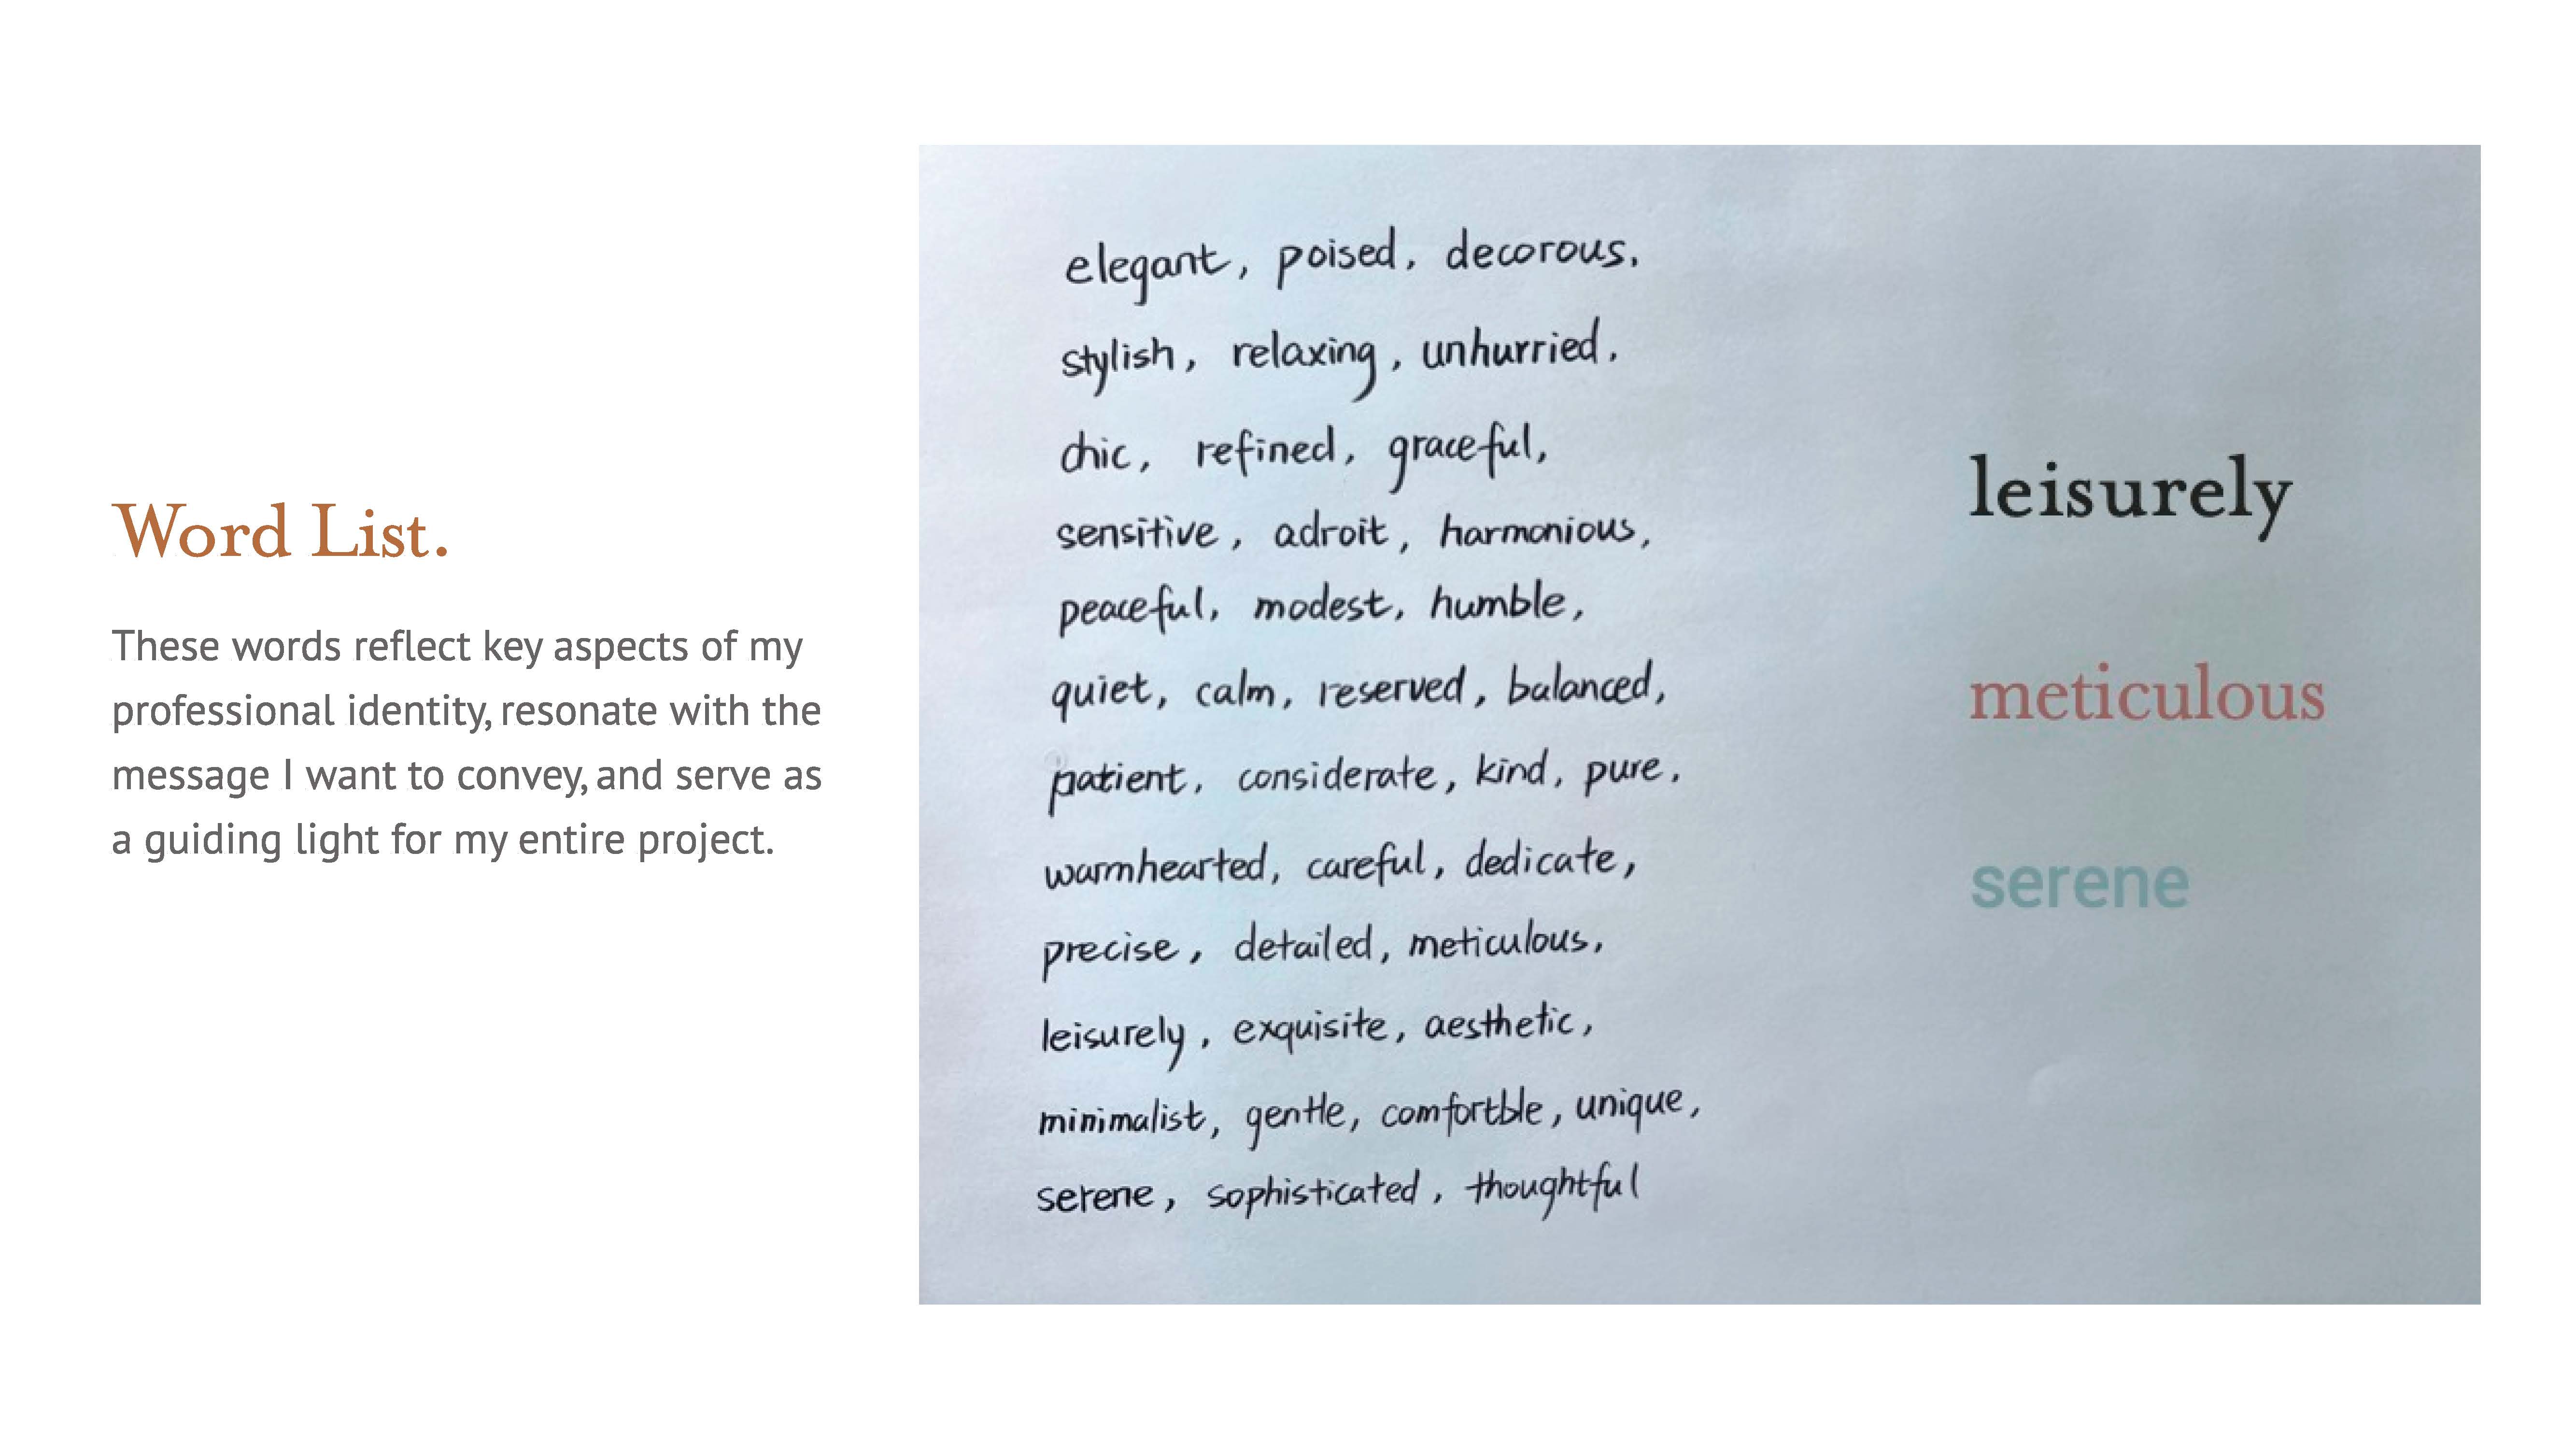 Word List.
These words reflect key aspects of my
professional identity, resonate with the
message I want to convey, and serve as
a guiding light for my entire project.
elegant, poised, decorous,
stylish, relaxing, unhurried,
chic, refined, graceful,
sensitive, adroit, harmonious,
peaceful, modest, humble,
quiet, calm, reserved, balanced,
patient, considerate, kind, pure,
warmhearted, careful, dedicate,
precise, detailed, meticulous,
leisurely, exquisite, aesthetic,
minimalist, gentle, comfortble, unique,
serene, sophisticated, thoughtful
leisurely
meticulous
serene